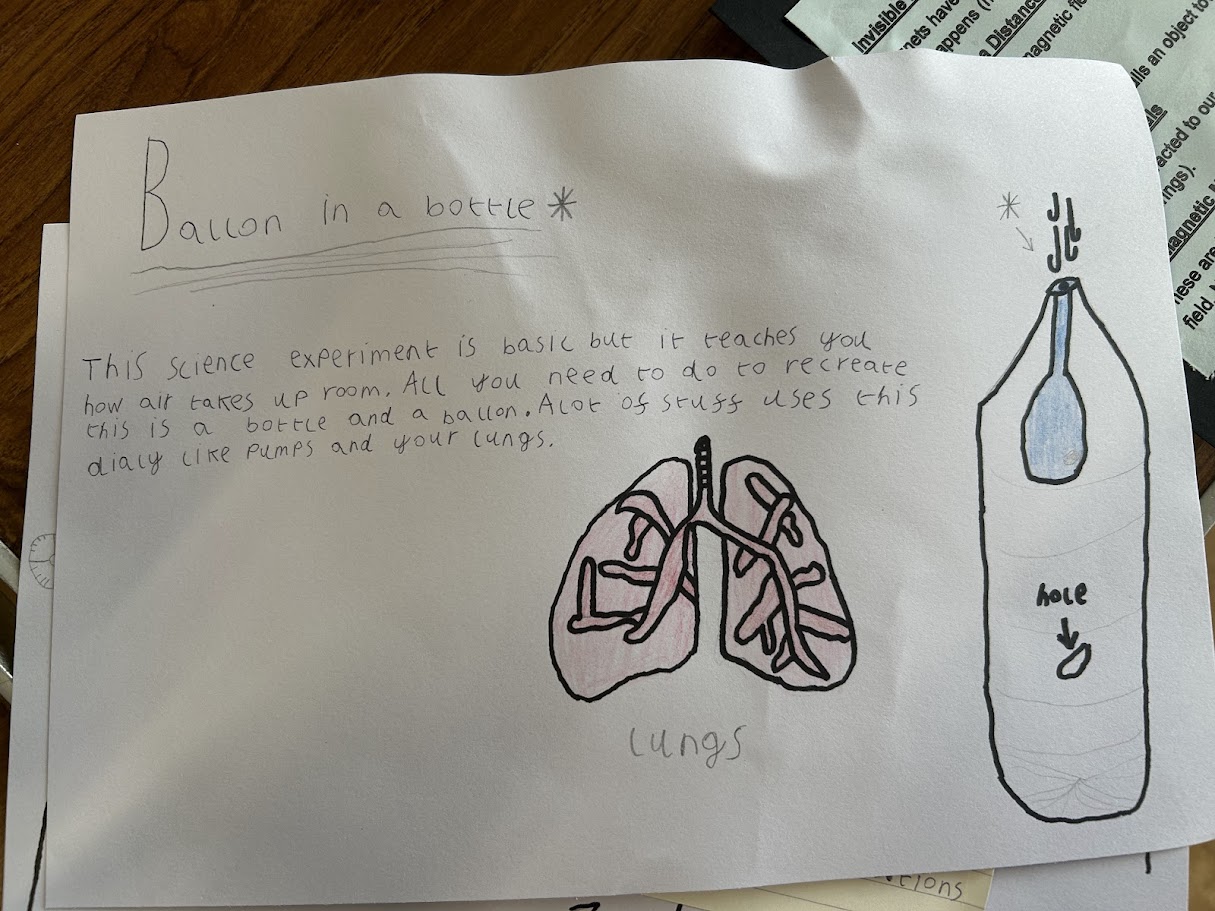 Ballon in a bottle*
This science experiment is basic but it teaches you
how air takes up room. All you need to do to recreate
this is a bottle and a ballon. Alot of stuff uses this
dialy like pumps and your lungs.
lungs
*
hole
Invisible
nets have
appens
a Distance
magnetic fie
lls an object to
als
acted to our
ngs).
agnetic
hese are
field.